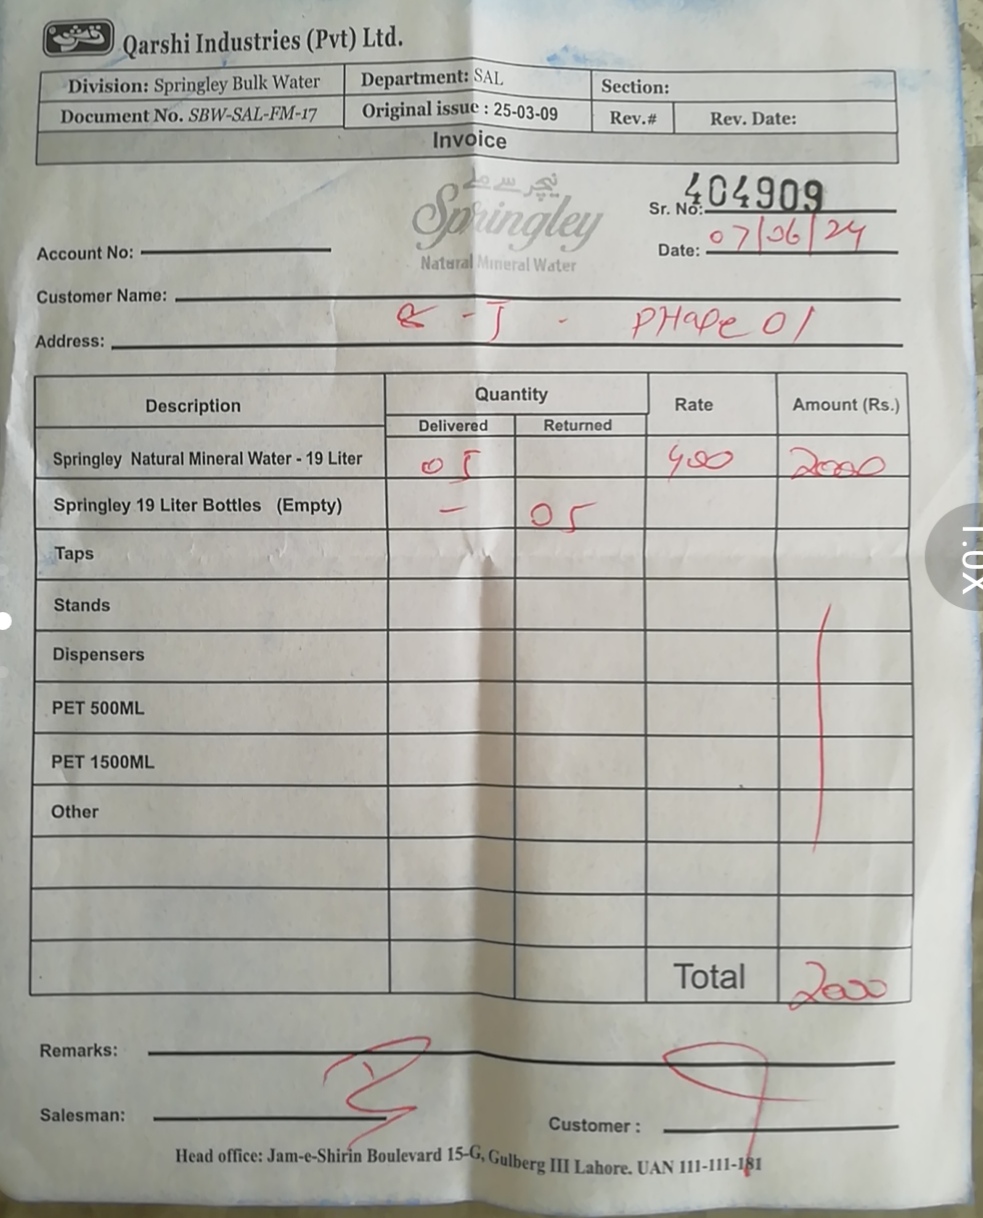 قرشی Qarshi Industries (Pvt) Ltd.
Division: Springley Bulk Water Department: SAL Section:
Document No. SBW-SAL-FM-17 Original issue : 25-03-09 Rev.# Rev. Date:
Invoice
نیچر سے ملے
Springley
Natural Mineral Water
Sr. No: 404909
Date: 07/06/24
Account No:
Customer Name:
Address: PHape 01
Description Quantity Rate Amount (Rs.)
Delivered Returned
Springley Natural Mineral Water - 19 Liter 05 400 2000
Springley 19 Liter Bottles (Empty) - 05
Taps
Stands
Dispensers
PET 500ML
PET 1500ML
Other
Total 2000
Remarks:
Salesman:
Customer :
Head office: Jam-e-Shirin Boulevard 15-G, Gulberg III Lahore. UAN 111-111-181
1.0X